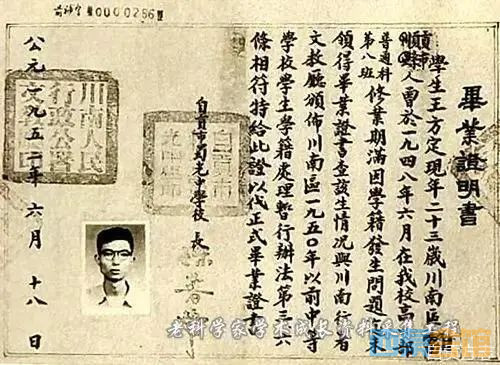 0000286
畢業證明書
學生王方定現年二十三歲川南區
人曾於一九四八年六月在我校高
普通科第八班修業期滿因學籍發生問題未
領得畢業證書查該生情況與川南行署
文教廳頒佈川南區一九五〇年以前中等
學校學生學籍處理暫行辦法第三六
條相符特給此證以代正式畢業證書
自貢市蜀光中學校 長
公元一九五一年六月十八日
川南人民
行政公署
自貢市
老科学家学术成长资料采集工程